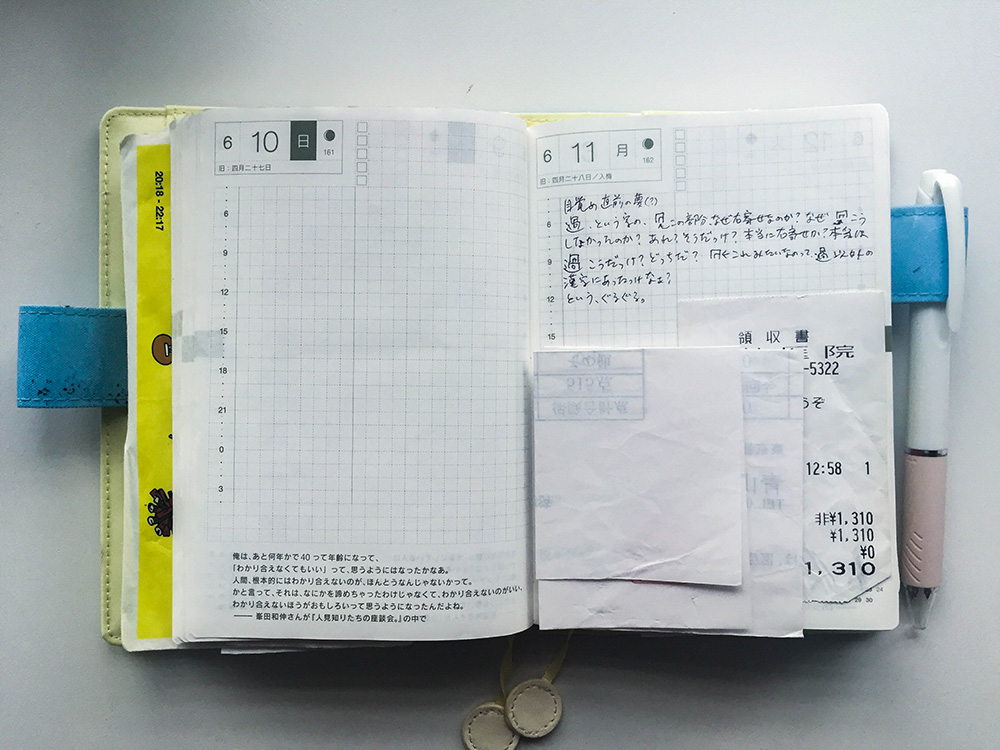 20:18 - 22:17
6 10 日
161
旧：四月二十七日
6
9
12
15
18
21
0
3
俺は、あと何年かで40って年齢になって、
「わかり合えなくてもいい」って、思うようにはなったかなあ。
人間、根本的にはわかり合えないのが、ほんとうなんじゃないかって。
かと言って、それは、なにかを諦めちゃったわけじゃなくて、わかり合えないのがいい、
わかり合えないほうがおもしろいって思うようになったんだよね。
—— 峯田和伸さんが『人見知りたちの座談会。』の中で
6 11 月
162
旧：四月二十八日／入梅
6
9
12
15
目覚め直前の夢(?)
過、という字の、この部分、なぜ右寄せなのか？なぜ こう
しなかったのか？あれ？そうだっけ？本当に右寄せか？本当は
過 こうだっけ？どっちだ？ これみたいなのって、過以外の
漢字にあったっけなぁ？
という、ぐるぐる。
領収書
院
-5322
うぞ
12:58 1
非¥1,310
¥1,310
¥0
1,310
24
29 30